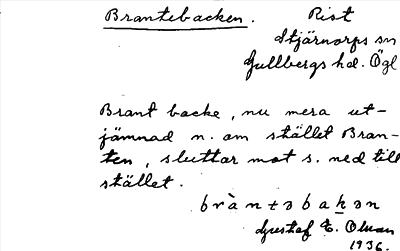 Brantebacken. Rist
Stjärnorps sn
Gullbergs hd. Ögl
Brant backe, nu mera ut-
jämnad n. om stället Bran-
ten, sluttar mot s. ned till
stället.
bràntəbakən
Gustaf E. Olsson
1936.